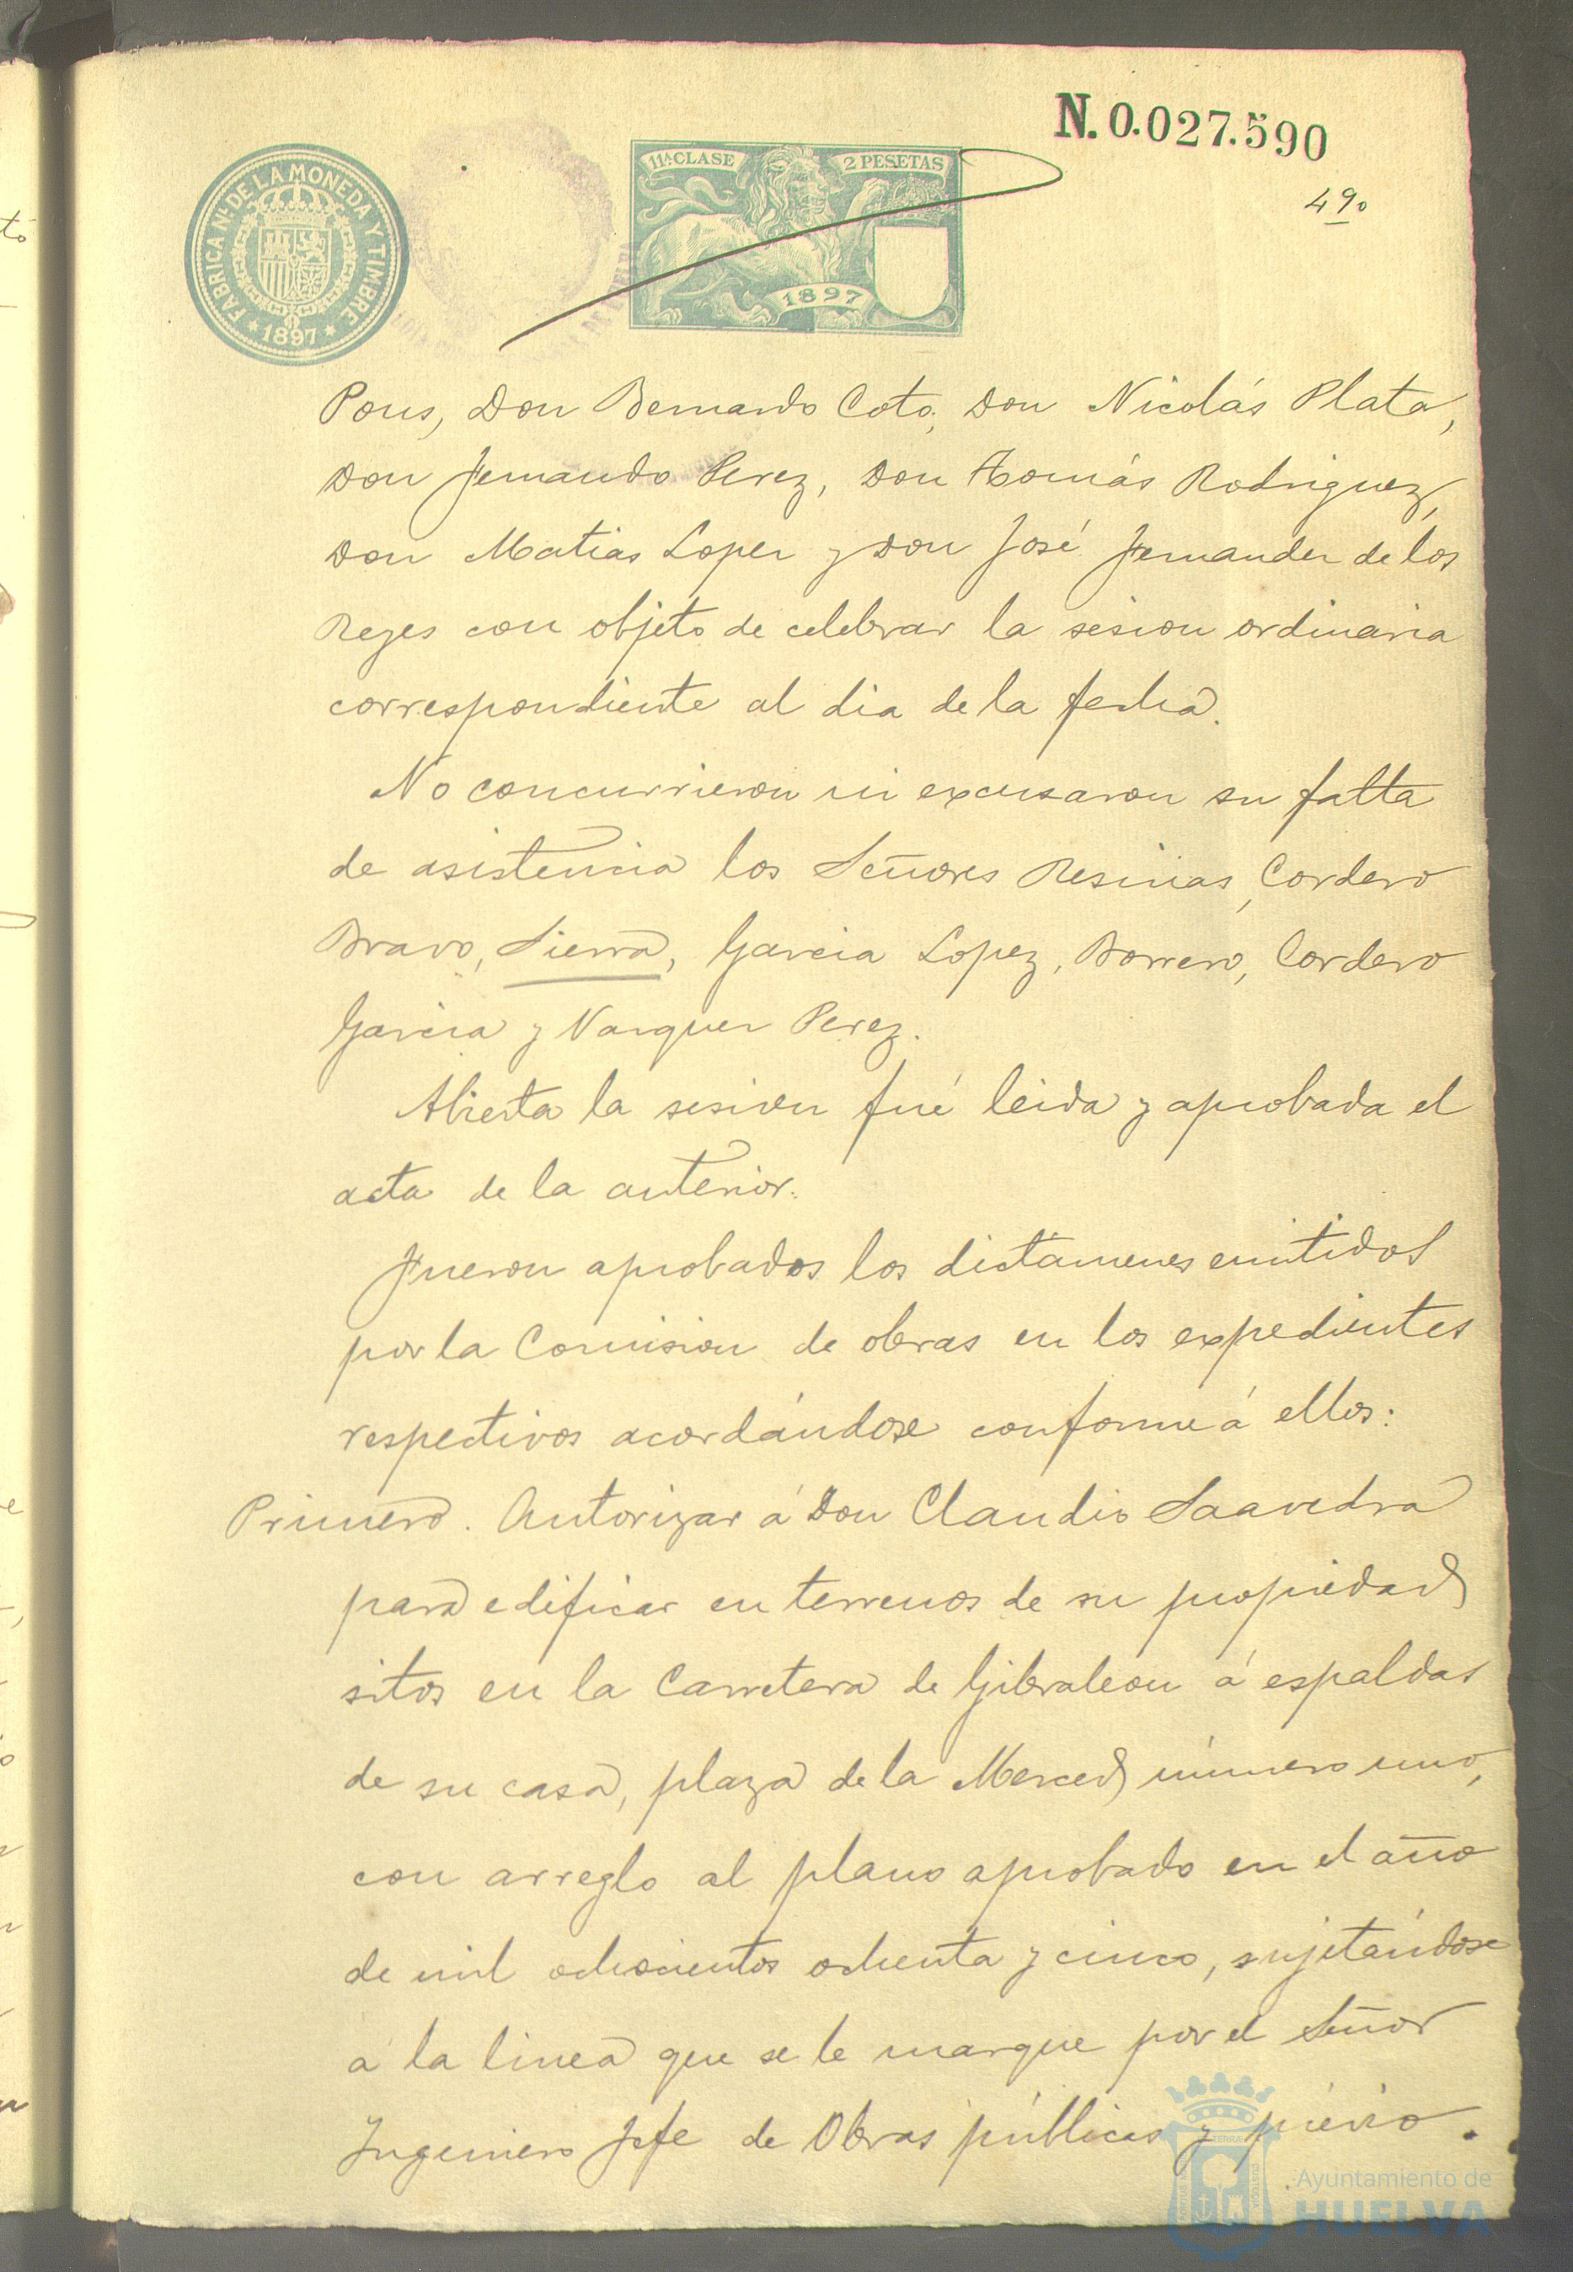 N. 0.027.590
49º
FABRICA Nªˡ DE LA MONEDA Y TIMBRE
* 1897 *
11ª CLASE
2 PESETAS
1897
Pons, Don Bernardo Coto, Don Nicolás Plata,
Don Fernando Perez, Don Tomás Rodriguez,
Don Matias Lopez y Don José Fernandez de los
Reyes con objeto de celebrar la sesion ordinaria
correspondiente al dia de la fecha.
No concurrieron ni excusaron su falta
de asistencia los Señores Resinas, Cordero
Bravo, Sierra, Garcia Lopez, Borrero, Cordero
Garcia y Vazquez Perez.
Abierta la sesion fué leida y aprobada el
acta de la anterior.
Fueron aprobados los dictámenes emitidos
por la Comision de obras en los expedientes
respectivos acordándose conforme á ellos:
Primero. Autorizar á Don Claudio Saavedra
para edificar en terrenos de su propiedad
sitos en la Carretera de Gibraleon á espaldas
de su casa, plaza de la Merced número uno,
con arreglo al plano aprobado en el año
de mil ochocientos ochenta y cinco, sujetándose
a la linea que se le marque por el Señor
Ingeniero Jefe de Obras públicas y prévio.
Ayuntamiento de
HUELVA